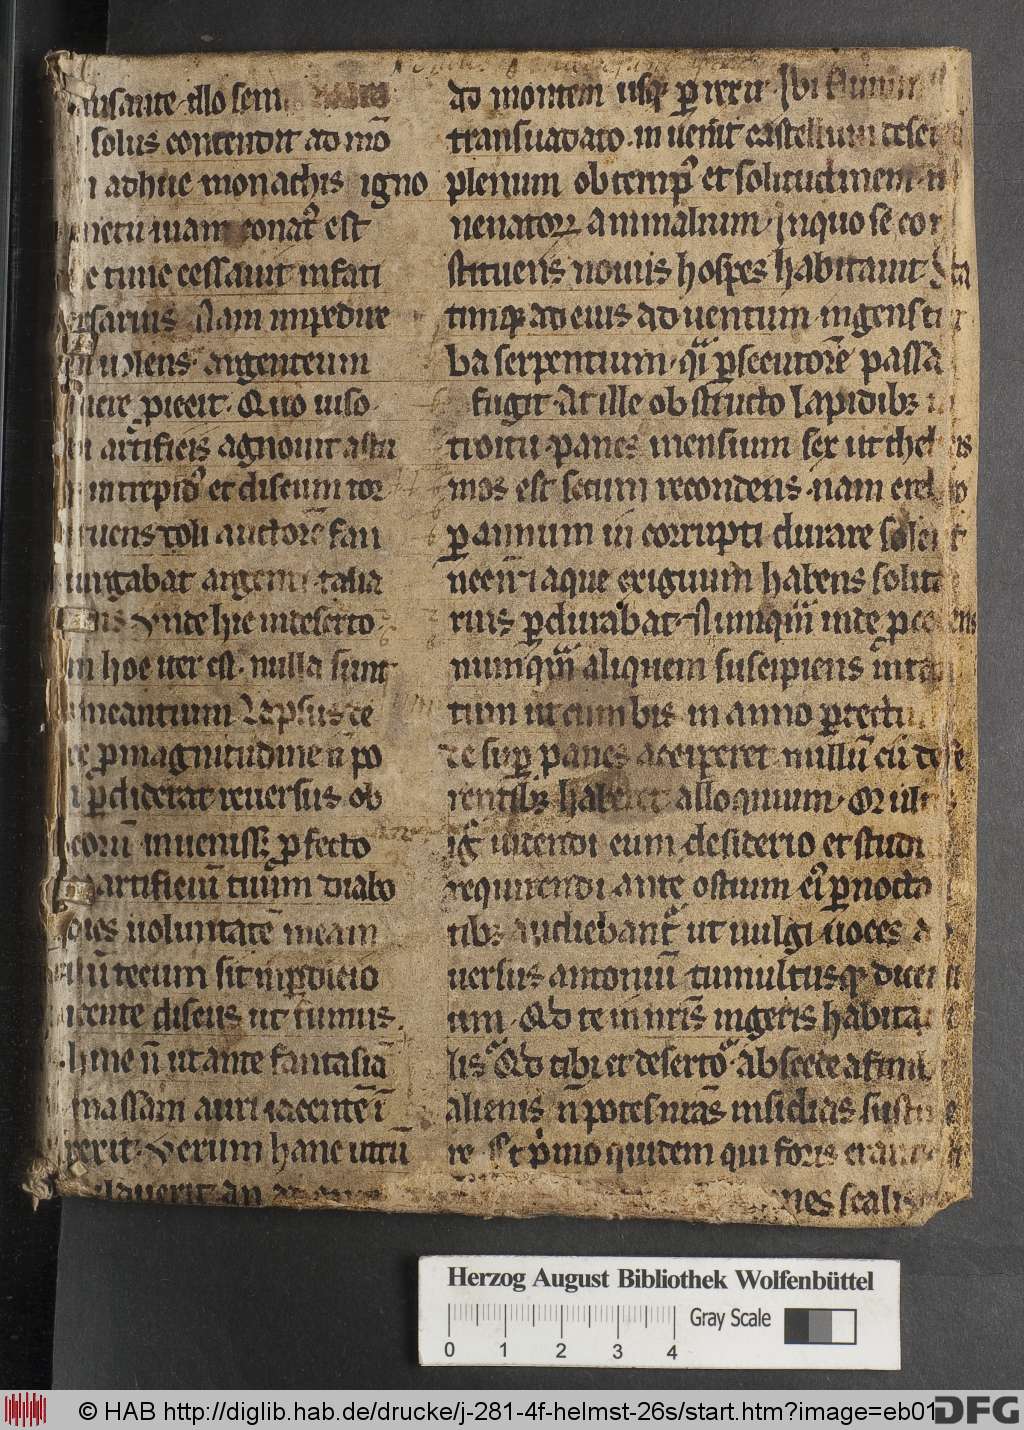 cusante illo sem
solus contendit ad mō
adhuc monachis igno
metu iuam conat᷒ est
e tunc cessauit infati
ersarius Nam impedire
uolens argenteum
icere piecit. Quo uiso
artificis agnouit astu
intrepid᷒ et discum tor
tuens doli auctorē fan
urgabat argenti talia
Vnde hic in deserto
in hoc iter est. nulla sunt
meantium Lapsus de
re p magnitudine ñ po
qui pdiderat reuersus ob
locorū inueniss& pfecto
artificiū tuum diabo
dies uoluntatē meam
tecum sit in pdicio
icente discus ut fumus
hinc ñ ut ante fantasiā
massam auri iacentē ī
perit. Verum hanc utrū
ad montem usq; prexit Ibi flumin
transuadato inuenit castellum deser
plenum ob temp᷒ et solitudinem
uenator animalium. In quo se con
stituens nouus hospes habitauit Sta
timq; ad eius aduentum ingens tur
ba serpentium. qi psecutorē passa
fugit. At ille obstructo lapidib;
troitu. panes mensium sex ut theb
mos est secum recondens. nam
p annum incorrupti durare solent
necñ i aque exiguum habens solita
rius pdurabat. Numquā inde p
numquā aliquem suscipiens intan
tum ut cum bis in anno p tectu
de sup panes acciperet nullū cū defe
rentib; haberet alloquium. Mul
igit uidendi eum desiderio et studi
requirendi ante ostium ei᷒ pnocta
tib; audieban& ut uulgi uoces a
uersus antoniū tumultusq; dicen
ium. Qd te in nris ingeris habita
lis Qd tibi et deserto. Abscede a finib
alienis ñ potes nrās insidias sustine
re. Et pimo quidem qui foris erant
nes scali
Herzog August Bibliothek Wolfenbüttel
Gray Scale
0 1 2 3 4
© HAB http://diglib.hab.de/drucke/j-281-4f-helmst-26s/start.htm?image=eb01
DFG